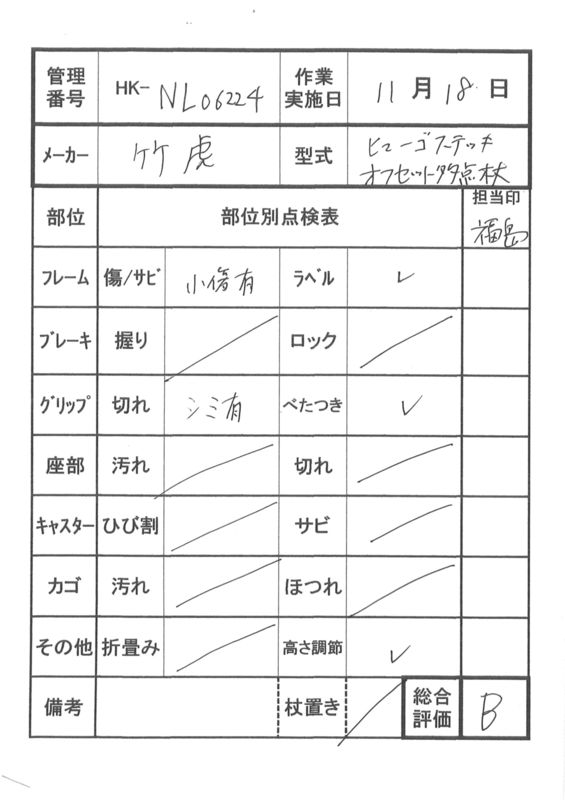 管理番号 HK- NL06224 作業実施日 11月18日
メーカー 竹虎 型式 ヒューゴステッキ
オフセット多点杖
部位 部位別点検表 担当印
福島
フレーム 傷/サビ 小傷有 ラベル ✓
ブレーキ 握り ロック
グリップ 切れ シミ有 べたつき ✓
座部 汚れ 切れ
キャスター ひび割 サビ
カゴ 汚れ ほつれ
その他 折畳み 高さ調節 ✓
備考 杖置き 総合評価 B